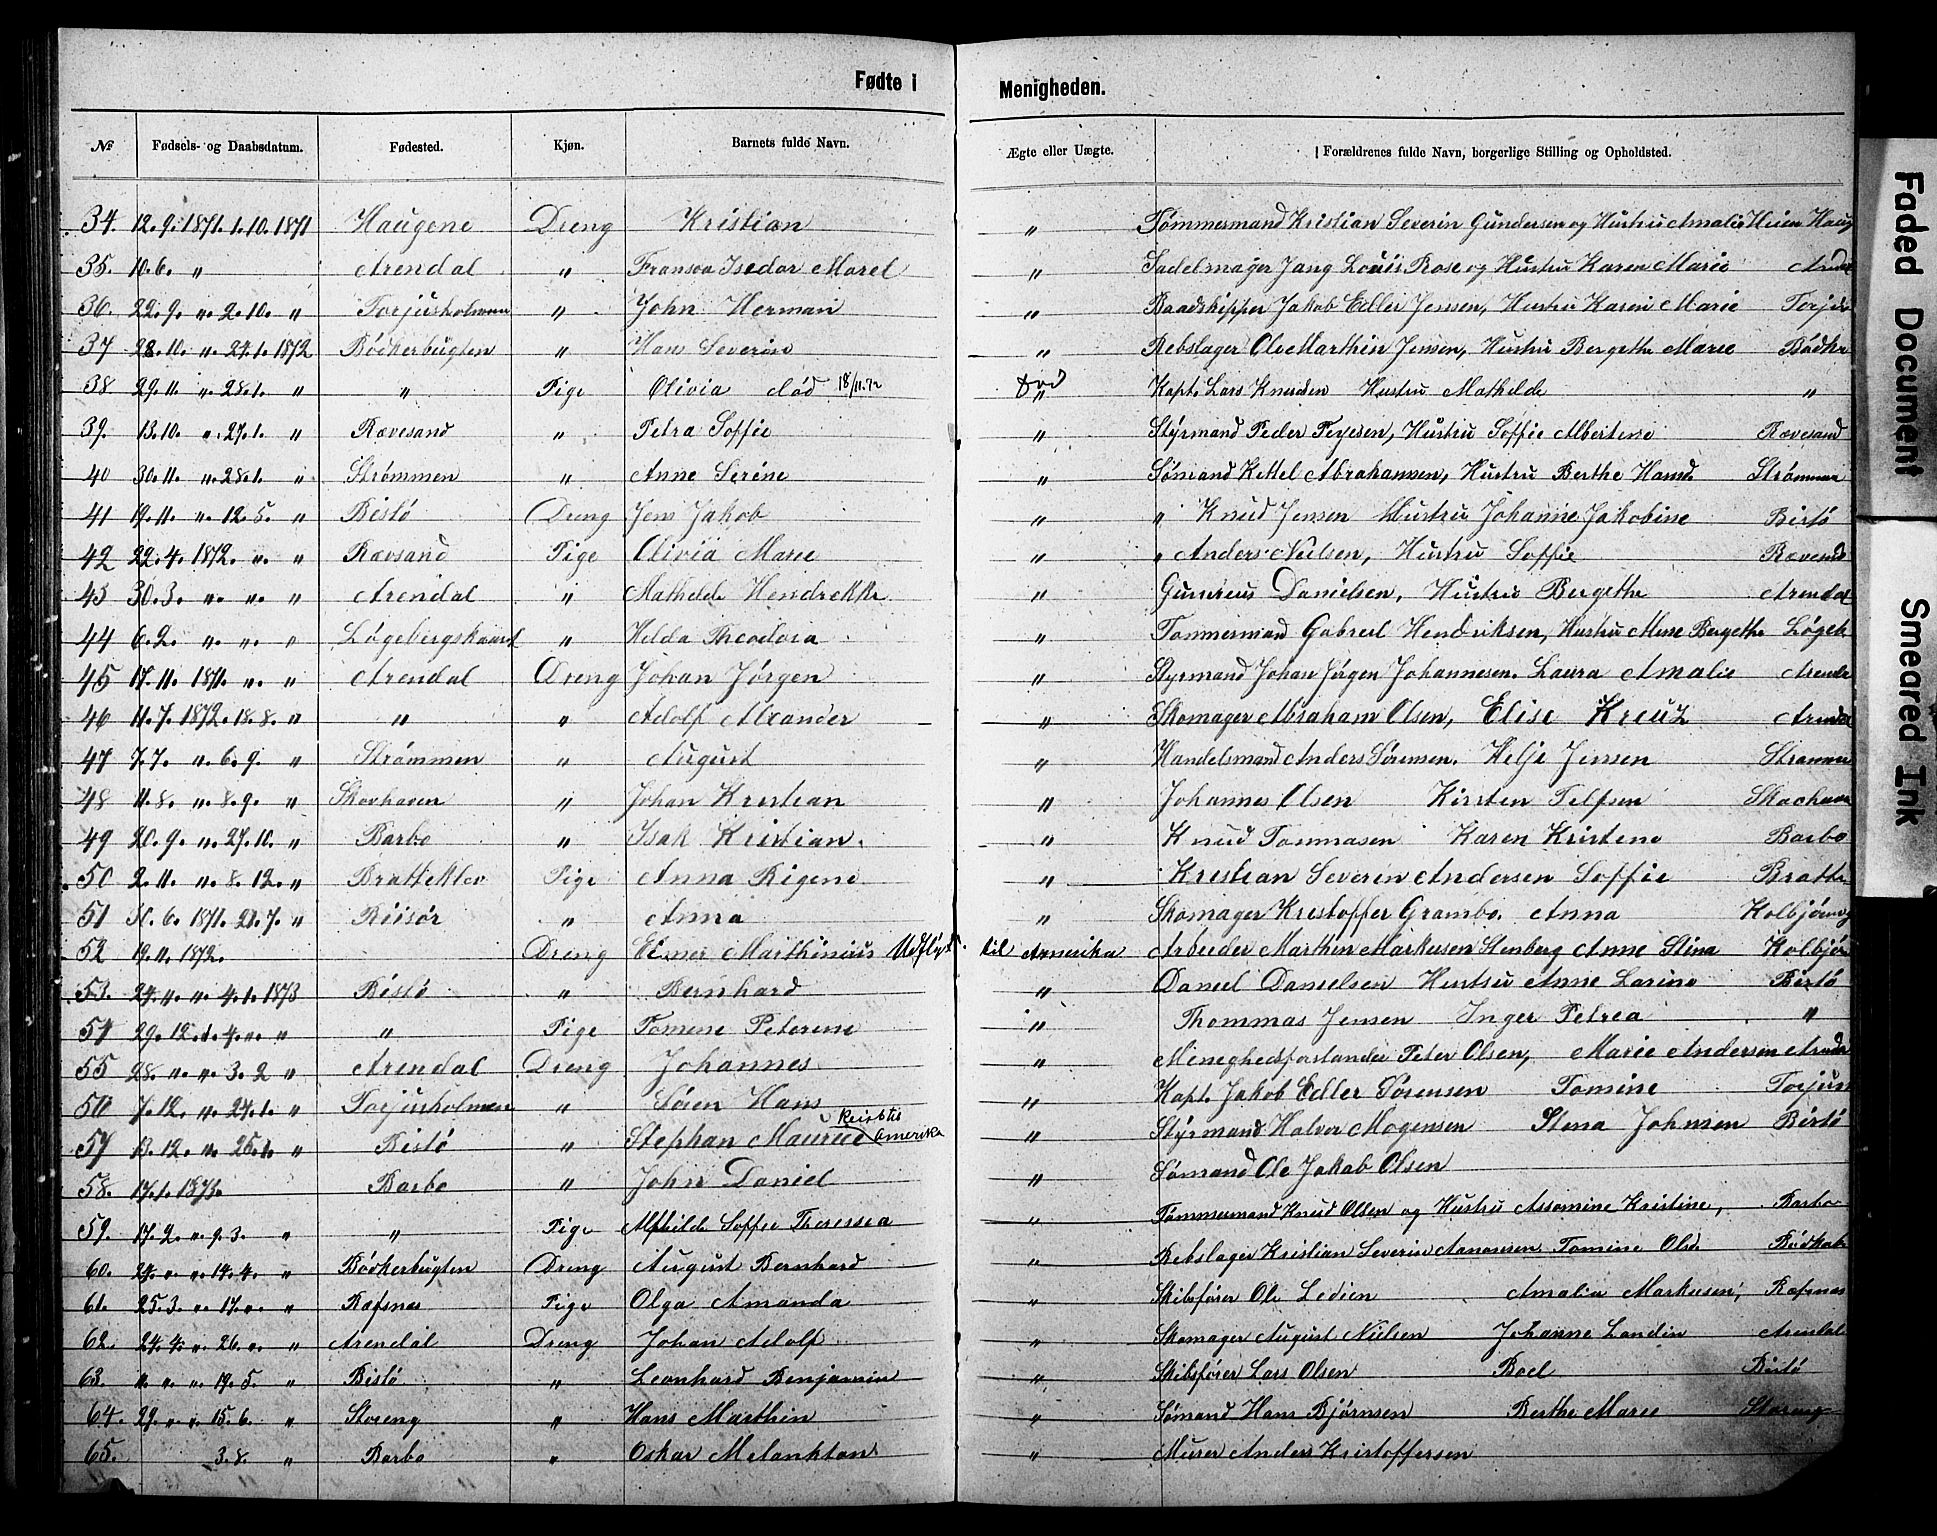 Fødte i Menigheden.
№ Fødsels- og Daabsdatum. Fødested. Kjøn. Barnets fulde Navn. Ægte eller Uægte. Forældrenes fulde Navn, borgerlige Stilling og Opholdsted.
34. 12. 9. 1871. 1. 10. 1871 Haugene Dreng Kristian " Tømmermand Kristian Severin Gundersen og Hustru Amalie Haug
35. 10. 6. " Arendal " Fransoa Isedor Morel " Sadelmager Jang Louis Rose og Hustru Karen Marie
36. 22. 9. ". 2. 10. " Torjusholmen " John Herman " Baadskipper Jakob Edler Jensen, Hustru Karen Marie
37 28. 10. ". 24. 1. 1872 Bödkerbugten " Hans Severin " Rebslager Ole Marthin Jensen, Hustru Bergethe Marie Bödke
38 29. 11. ". 28. 1. " " Pige Olivia död 18/11.72 död " Kapt. Lars Knudsen Hustru Mathilde "
39. 13. 10. ". 27. 1. " Rævesand " Petra Soffie " Styrmand Peder Hustru Soffie Albertine Rævesand
40 30. 11. ". 28. 1. " Strømmen " Anne Serine " Sømand Kettel Abrahamsen, Hustru Berthe Strømmen
41 19. 11. ". 12. 5. " Bistö Dreng Jens Jakob " " Knud Jensen Hustru Johanne Jakobine Bistö
42 22. 4. 1872. ". " Rævsand Pige Olivia Marie " " Anders Nielsen, Hustru Soffie Rævesand
43 30. 3. ". ". " Arendal " Mathilde Hendrekke " Danielsen, Hustru Bergethe Arendal
44 6. 2. ". ". " Løgebergskaard " Hilda Theodora " Tommermand Gabriel Hendriksen, Hustru Bergethe Løgeb
45 17. 11. 1871. ". " Arendal Dreng Johan Jörgen " Styrmand Johan Jörgen Johannesen. Laura Amalie
46 11. 7. 1872. 18. 8. " " " Adolf Alexander " Skomager Abraham Olsen, Elise Kreuz
47 7. 7. ". 6. 9. " Strømmen " August " Handelsmand Anders Sørensen. Helje Jensen
48 11. 8. ". 8. 9. " Skovhaven " Johan Kristian " Johannes Olsen Kirsten
49 20. 9. ". 27. 10. " Barbo " Isak Kristian. " Knud Tommasen Karen Kristene Barbo
50 2. 11. ". 8. 12. " Bratteklev Pige Anna Rigene " Kristian Severin Andersen Soffie Bratte
51 6. 1871. 21. 7. " Riisör " Anna " Skomager Kristoffer Grambo. Anna
52 19. 11. 1872. Dreng Marthinius Udflyt til Amerika Arbeider Marthin Markusen Stenberg Anne Stina Kolbjör
53. 24. ". ". 4. 1. 1873 Bistö " Bernhard " Daniel Danielsen Hustru Anne Larine Bistö
54 29. 12. 4. ". " " Pige Tomine Peterene " Thommas Jensen Inger Petrea "
55 28. ". ". 3. 2 " Arendal Dreng Johannes " Meneghedsforstander Peter Olsen, Marie Andersen
56 7. 12. ". 27. 1. " Torjusholmen " Søren Hans " Kapt. Jakob Edler Sørensen Tomine Torjus
57 13. 12. ". 25. 1. " Bistö " Stephan Maurice Amerika " Styrmand Halvor Mogensen Stena Johnsen Bistö
58. 17. 1. 1873. Barbo " John Daniel " Sømand Ole Jakob Olsen
59. 17. 2. ". 9. 3. " " Pige Mathilde Soffie Theressea " Tømmermand Knud Olsen og Hustru Assomine Kristine, Barbo
60. 24. ". ". 14. 4. " Bödkerbugten Dreng August Bernhard " Rebslager Kristian Severin Tomine Olsd.
61. 25. 3. ". 17. ". " Ræfsnæs Pige Olga Amanda " Skibsfører Ole Ledien Amalia Markusen, Ræfsnæs
62. 24. 4. ". 26. ". " Arendal Dreng Johan Adolf " Skomager August Nielsen Johanne Landin Arendal
63. ". ". ". 19. 5. " Bistö " Leonhard Benjamin " Skibsfører Lars Olsen Boel Bistö
64. 29. ". ". 15. 6. " Storeng " Hans Marthin " Sømand Hans Bjørnsen Berthe Marie Storeng
65. 3. 8. " Barbo " Oskar Melankton " Murer Anders Kristoffersen
Faded Document
Smeared Ink